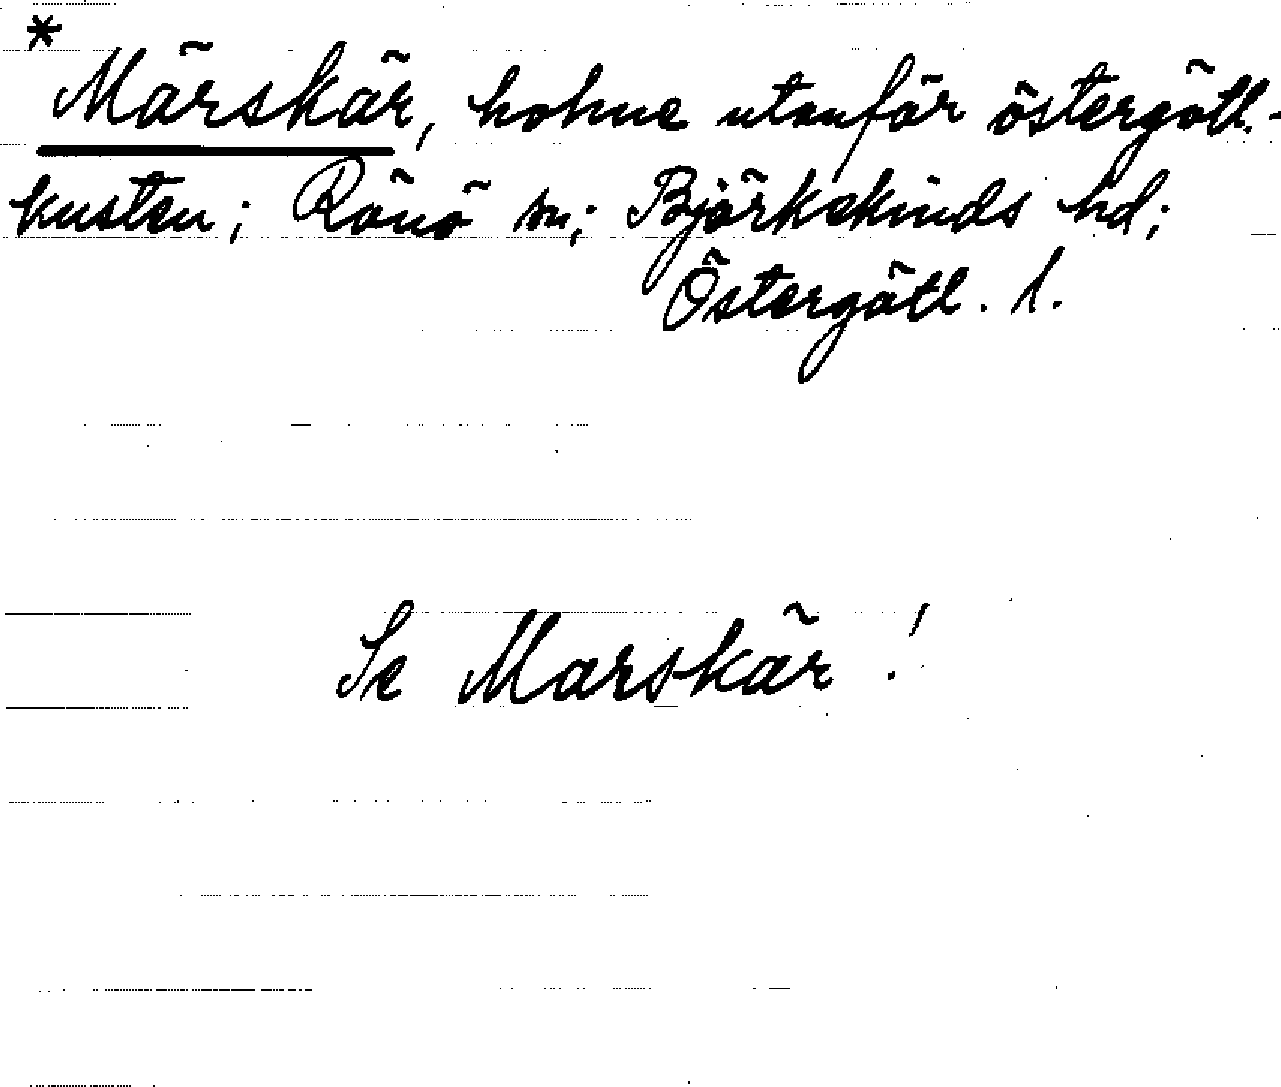 * Märskär, holme utanför östergötl.-
kusten; Rönö sn; Björkekinds hd;
Östergötl. l.
Se Marskär!